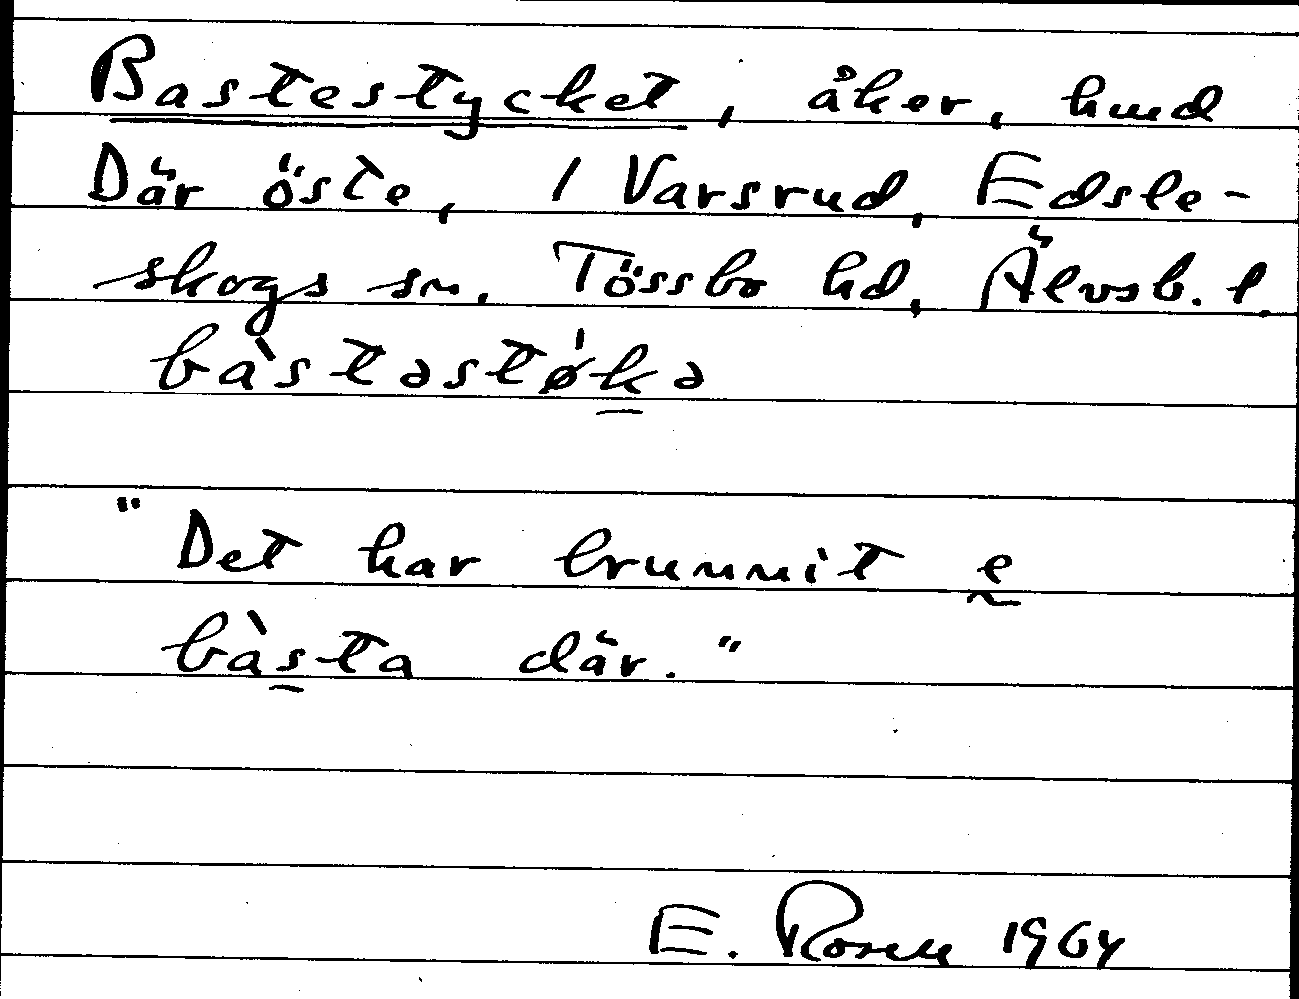 Bastestycket, åker, hmd
Där öste, 1 Varsrud, Edsle-
skogs sn. Tössbo hd, Älvsb. l.
bàstastø'ka
"Det har brunnit e
bàsta där."
E. Rosell 1964